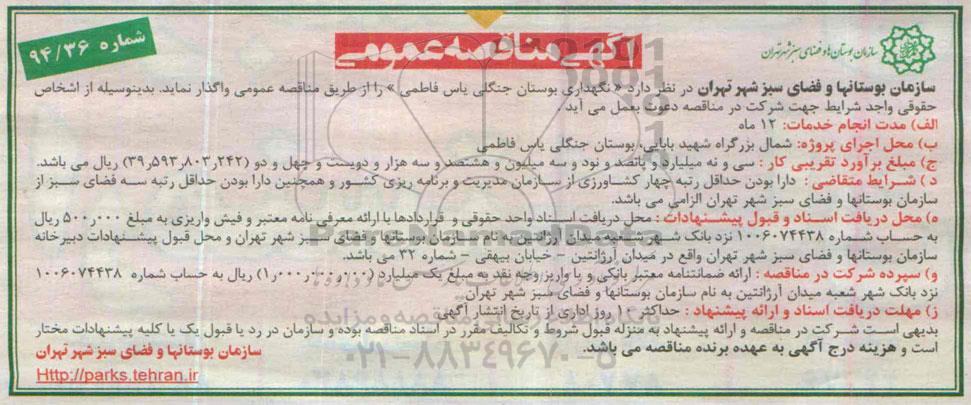 شماره ۹۴/۳۶
آگهی مناقصه عمومی
سازمان بوستان‌ها و فضای سبز شهر تهران
سازمان بوستانها و فضای سبز شهر تهران در نظر دارد «نگهداری بوستان جنگلی یاس فاطمی» را از طریق مناقصه عمومی واگذار نماید. بدینوسیله از اشخاص
حقوقی واجد شرایط جهت شرکت در مناقصه دعوت بعمل می آید.
الف) مدت انجام خدمات: ۱۲ ماه
ب) محل اجرای پروژه: شمال بزرگراه شهید بابایی، بوستان جنگلی یاس فاطمی
ج) مبلغ برآورد تقریبی کار: سی و نه میلیارد و پانصد و نود و سه میلیون و هشتصد و سه هزار و دویست و چهل و دو (۳۹٫۵۹۳٫۸۰۳٫۲۴۲) ریال می باشد.
د) شرایط متقاضی: دارا بودن حداقل رتبه چهار کشاورزی از سازمان مدیریت و برنامه ریزی کشور و همچنین دارا بودن حداقل رتبه سه فضای سبز از
سازمان بوستانها و فضای سبز شهر تهران الزامی می باشد.
ه) محل دریافت اسناد و قبول پیشنهادات: محل دریافت اسناد واحد حقوقی و قراردادها با ارائه معرفی نامه معتبر و فیش واریزی به مبلغ ۵۰۰٫۰۰۰ ریال
به حساب شماره ۱۰۰۶۰۷۴۴۳۸ نزد بانک شهر شعبه میدان آرژانتین به نام سازمان بوستانها و فضای سبز شهر تهران و محل قبول پیشنهادات دبیرخانه
سازمان بوستانها و فضای سبز شهر تهران واقع در میدان آرژانتین - خیابان بیهقی - شماره ۳۲ می باشد.
و) سپرده شرکت در مناقصه: ارائه ضمانتنامه معتبر بانکی و یا واریز وجه نقد به مبلغ یک میلیارد (۱٫۰۰۰٫۰۰۰٫۰۰۰) ریال به حساب شماره ۱۰۰۶۰۷۴۴۳۸
نزد بانک شهر شعبه میدان آرژانتین به نام سازمان بوستانها و فضای سبز شهر تهران.
ز) مهلت دریافت اسناد و ارائه پیشنهاد: حداکثر ۱۰ روز اداری از تاریخ انتشار آگهی
بدیهی است شرکت در مناقصه و ارائه پیشنهاد به منزله قبول شروط و تکالیف مقرر در اسناد مناقصه بوده و سازمان در رد یا قبول یک یا کلیه پیشنهادات مختار
است و هزینه درج آگهی به عهده برنده مناقصه می باشد.
سازمان بوستانها و فضای سبز شهر تهران
Http://parks.tehran.ir
۰۲۱-۸۸۳۴۹۶۷۰-۵